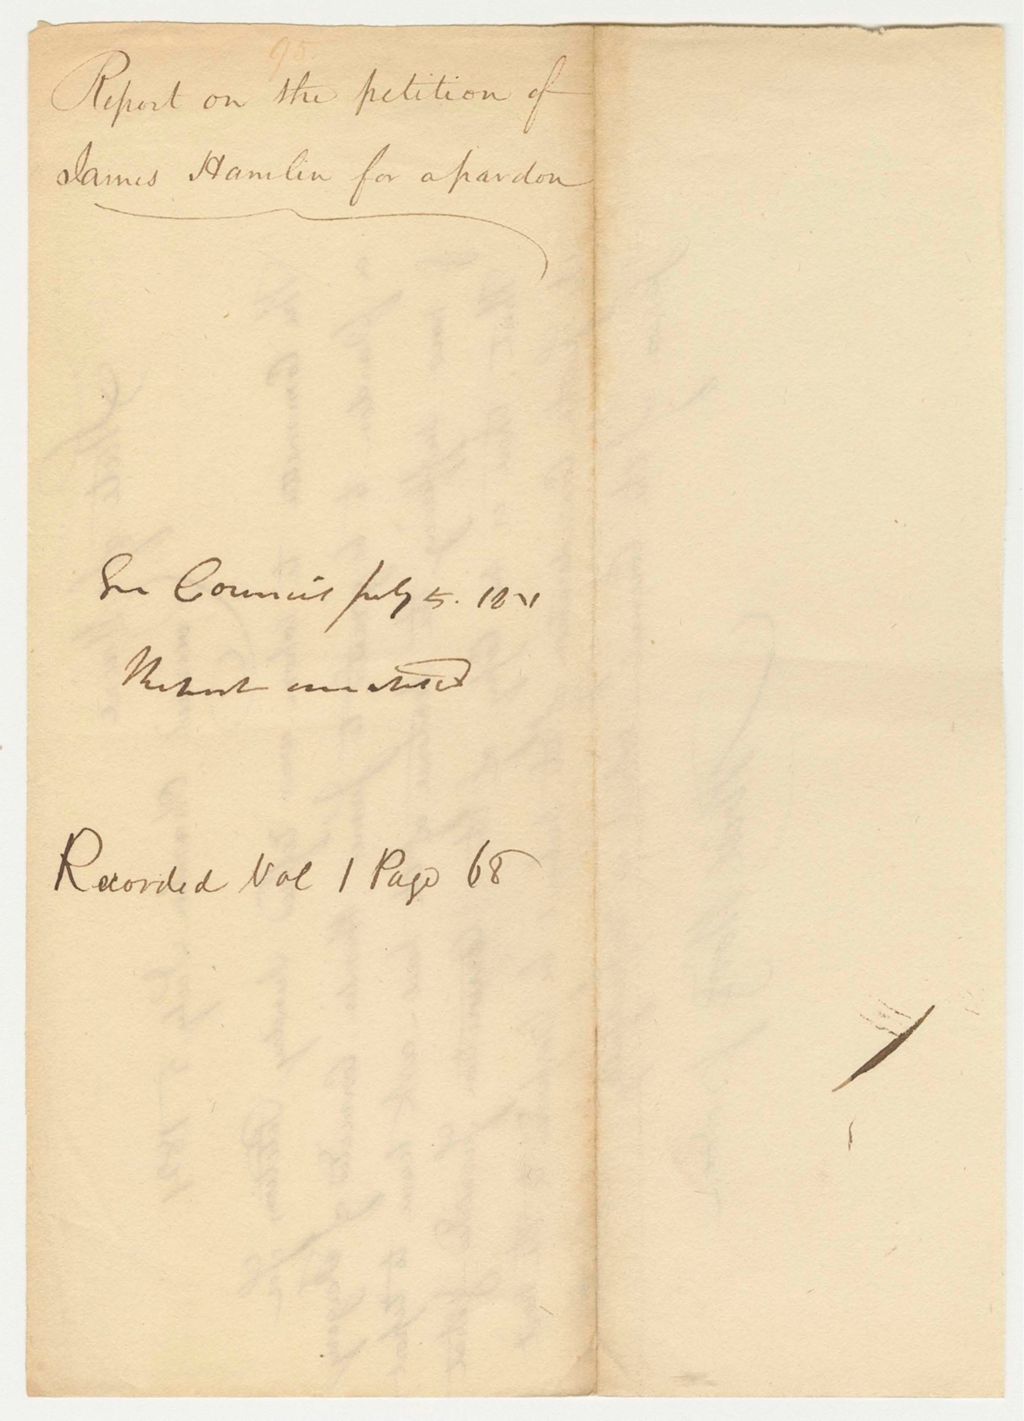 95
Report on the petition of
James Hamlin for a pardon
In Council July 5. 1821
Report accepted
Recorded Vol 1 Page 68